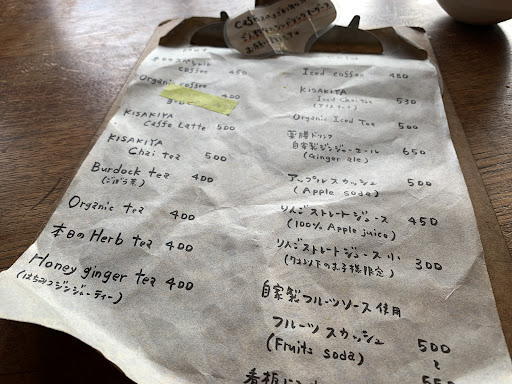 coffee 450
Organic coffee
400
KISAKIYA
Caffe Latte 500
KISAKIYA
Chai tea 500
Burdock tea
(ごぼう茶) 400
Organic tea 400
本日のHerb tea 400
Honey ginger tea 400
(はちみつジンジャーティー)
Iced coffee 450
KISAKIYA
Iced Chai tea 530
(アイスチャイ)
Organic Iced Tea 500
薬膳ドリンク
自家製ジンジャーエール 650
(Ginger ale)
アップルスカッシュ 500
(Apple soda)
りんごストレートジュース 450
(100% Apple juice)
りんごストレートジュース 小 300
(7才以下のお子様限定)
自家製フルーツソース使用
フルーツスカッシュ 500
(Fruits soda) 〜